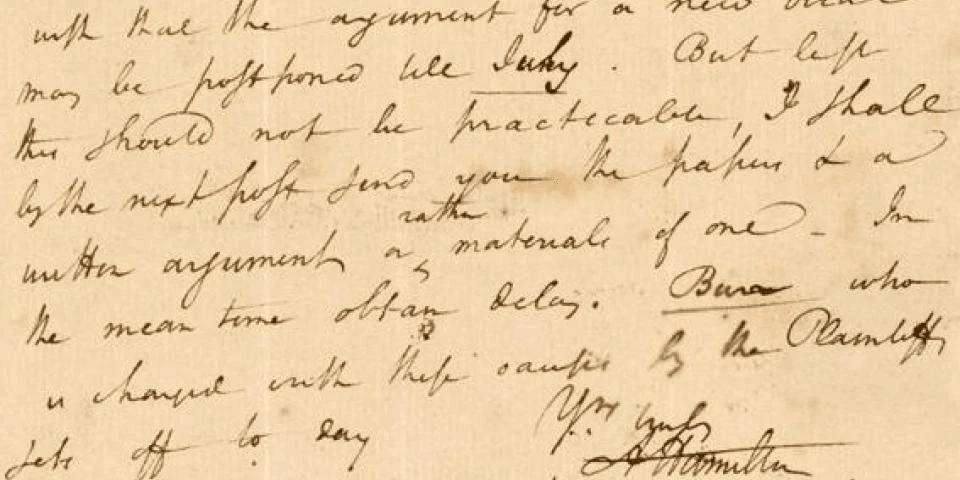 wish that the argument for a new trial
may be postponed till July. But lest
this should not be practicable, I shall
by the next post send you the papers & a
rather
written argument or materials of one – In
the mean time obtain delay. Burr who
is charged with these causes by the Plaintiffs
sets off to day
Yrs truly
A Hamilton